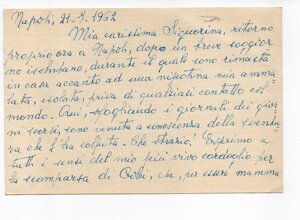 Napoli, 21-7-1962
Mia carissima Signorina, ritorno
proprio ora a Napoli, dopo un breve soggior
no ischitano, durante il quale sono rimasta
in casa accanto ad una nipotina mia amma
lata, isolata, priva di qualsiasi contatto col
mondo. Qui, sfogliando i giornali dei gior
ni scorsi, sono venuta a conoscenza della sventu
ra che l'ha colpita. Che strazio! Esprimo a
tutti i sensi del mio più vivo cordoglio per
la scomparsa di che, per esseri mamma